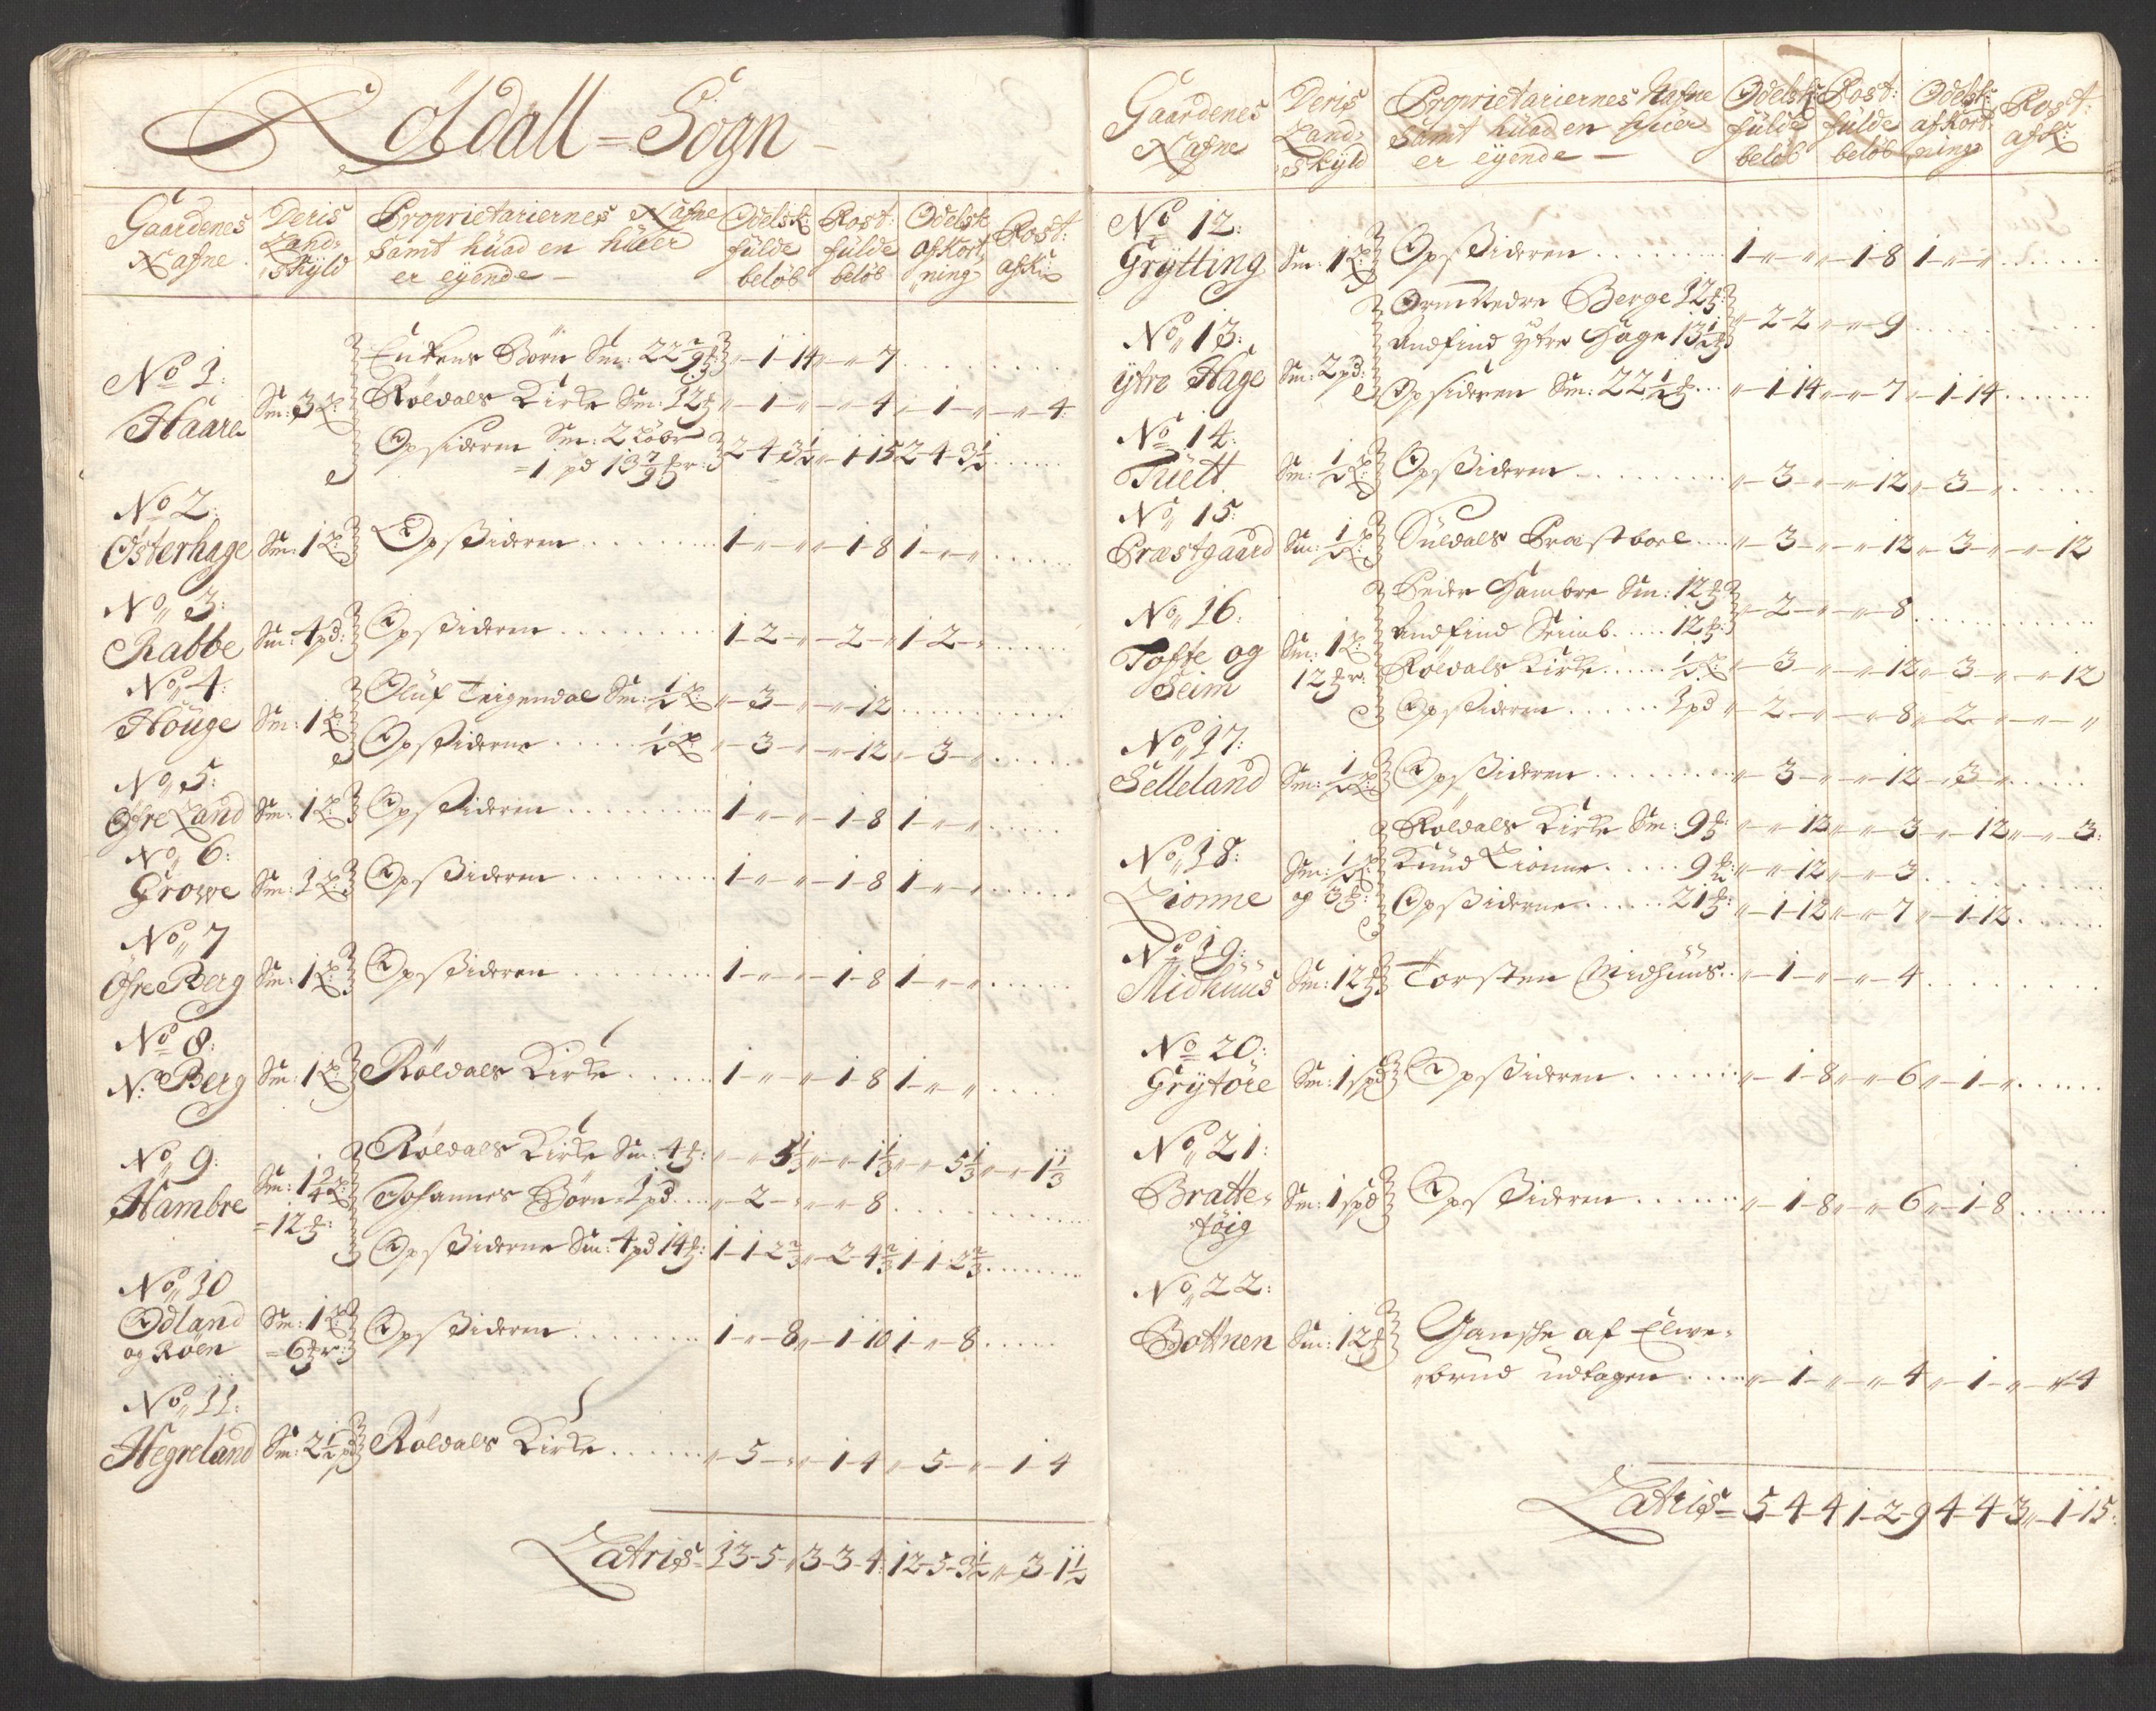 Röldall = Sogn
Gaardenes Nafne
Deris Land: skÿld
Proprietariernes Nafne Samt hüad en hüer er eÿende
Odelsk: fülde belöb
Rost: fülde belöb
Odelsk: afkort: ning
Rost: afk:
No 1:
Haare
Börn Sm: 22 2/9 „-1-14 „-„-7
Röldals Kirke Sm: 12 „-1-„ „-„-4 „-1-„ „-„-4
Opsideren Sm: 2 Löber = 1 pd 13 7/9 2-4-3 1/2 „-1-15 2-4-3 1/2
No 2:
Österhage Sm: 1 Opsideren 1-„-„ „-1-8 1-„-„
No 3:
Rabbe Sm: 4 pd: Opsideren 1-2-„ „-2-„ 1-2-„
No 4:
Höuge Sm: 1
Olüf Teigendal Sm: 1/2 „-3-„ „-„-12
Opsiderne 1/2 „-3-„ „-„-12 „-3-„
No 5:
Öfre Land Sm: 1 Opsideren 1-„-„ „-1-8 1-„-„
No 6:
Growe Sm: 1 Opsideren 1-„-„ „-1-8 1-„-„
No 7
Öfre Berg Sm: 1 Opsideren 1-„-„ „-1-8 1-„-„
No 8:
N: Berg Sm: 1 Röldals Kirke 1-„-„ „-1-8 1-„-„
No 9:
Hambre Sm: 1 3/4 = 12
Röldals Kirke Sm: 4 „-„-5 1/3 „-„-1 1/3 „-„-5 1/3 „-„-1 1/3
Johannes Börn 1 pd „-2-„ „-„-8
Opsiderne Sm: 4 pd 14 1-1-2 2/3 „-2-4 2/3 1-1-2 2/3
No 10
Odland og Röen Sm: 1 = 6 Opsideren 1-„-8 „-1-10 1-„-8
No 11:
Hegreland Sm: 2 1/2 pd Röldals Kirke „-5-„ „-1-4 „-5-„ „-1-4
Latris = 13-5-„ 3-3-4 12-5-3 1/2 „-3-1 1/2
Gaardenes Nafne
Deris Land: skÿld
Proprietariernes Nafne Samt hüad en hüer er eÿende
Odelsk: fülde belöb
Rost: fülde belöb
Odelsk: afkort: ning
Rost: afk:
No 12:
Grÿtting Sm: 1 Opsideren 1-„-„ „-1-8 1-„-„
No 13:
ÿtre Hage Sm: 2 pd:
Berge 12
Andfind ÿtre Hage 13 1/2 „-2-2 „-„-9
Opsideren Sm: 22 1/2 „-1-14 „-„-7 „-1-14
No 14:
Tüett Sm: 1/2 Opsideren „-3-„ „-„-12 „-3-„
No 15:
Præstgaard Sm: 1/2 Süldals Præstbord „-3-„ „-„-12 „-3-„ „-„-12
No 16:
Tofte og Seim Sm: 1 12
Peder Hambre Sm: 12
Andfind Seimb 12 „-2-„ „-„-8
Röldals Kirke 1/2 „-3-„ „-„-12 „-3-„ „-„-12
Opsideren 1 pd „-2-„ „-„-8 „-2-„ „-„-„
No 17:
Selleland Sm: 1/2 Opsideren „-3-„ „-„-12 „-3-„
No 18:
Lionne Sm: 1/2 og 3
Röldals Kirke Sm: 9 „-„-12 „-„-3 „-„-12 „-„-3
Knud Lionne 9 „-„-12 „-„-3
Opsiderne 21 „-1-12 „-„-7 „-1-12
No 19:
Midhüüs Sm: 12 Torsten Midhüüs „-1-„ „-„-4
No 20:
Grÿtöre Sm: 1 spd Opsideren „-1-8 „-„-6 „-1-„
No 21:
Bratte-töig Sm: 1 spd Opsideren „-1-8 „-„-6 „-1-8
No 22:
Bottnen Sm: 12 Ganske af Elve-
brud udtagen „-1-„ „-„-4 „-1-„ „-„-4
Latris = 5-4-4 1-2-9 4-4-3 „-1-15